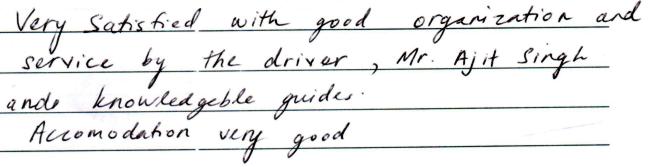 Very Satisfied with good organization and
service by the driver, Mr. Ajit Singh
ande knowledgeble guides.
Accomodation very good